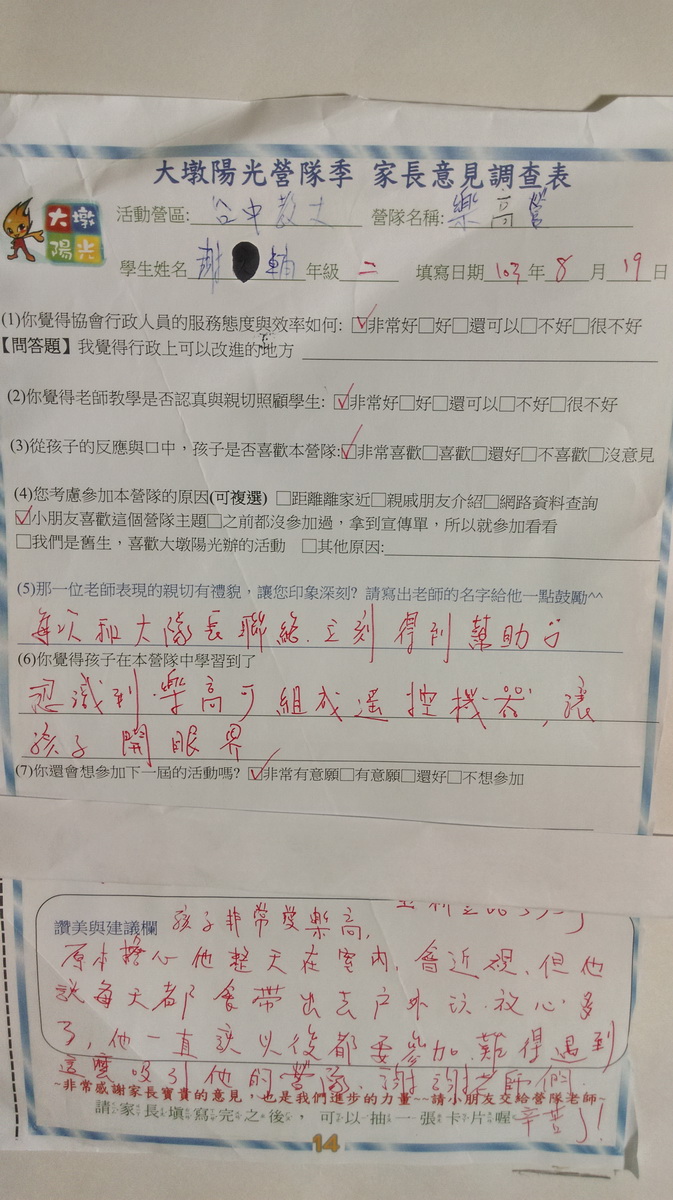 大墩陽光營隊季 家長意見調查表
大墩
陽光
活動營區: 台中教大 營隊名稱: 樂高營
學生姓名 謝 輔 年級 二 填寫日期 103 年 8 月 19 日
(1)你覺得協會行政人員的服務態度與效率如何: ☑非常好□好□還可以□不好□很不好
【問答題】我覺得行政上可以改進的地方
(2)你覺得老師教學是否認真與親切照顧學生: ☑非常好□好□還可以□不好□很不好
(3)從孩子的反應與口中，孩子是否喜歡本營隊:☑非常喜歡□喜歡□還好□不喜歡□沒意見
(4)您考慮參加本營隊的原因(可複選) □距離離家近□親戚朋友介紹□網路資料查詢
☑小朋友喜歡這個營隊主題□之前都沒參加過，拿到宣傳單，所以就參加看看
□我們是舊生，喜歡大墩陽光辦的活動 □其他原因:
(5)那一位老師表現的親切有禮貌，讓您印象深刻? 請寫出老師的名字給他一點鼓勵^^
每次和大隊長聯絡.立刻得到幫助
(6)你覺得孩子在本營隊中學習到了
認識到樂高可組成遥控機器,讓
孩子開眼界
(7)你還會想參加下一屆的活動嗎? ☑非常有意願□有意願□還好□不想參加
讚美與建議欄 孩子非常愛樂高,
原本擔心他整天在室內.會近視.但他
說每天都會帶出去戶外玩.放心多
了,他一直說以後都要參加.難得遇到
這麼吸引他的營隊.謝謝老師們.
辛苦了!
~非常感謝家長寶貴的意見，也是我們進步的力量~~請小朋友交給營隊老師~
請家長填寫完之後，可以抽一張卡片喔
14